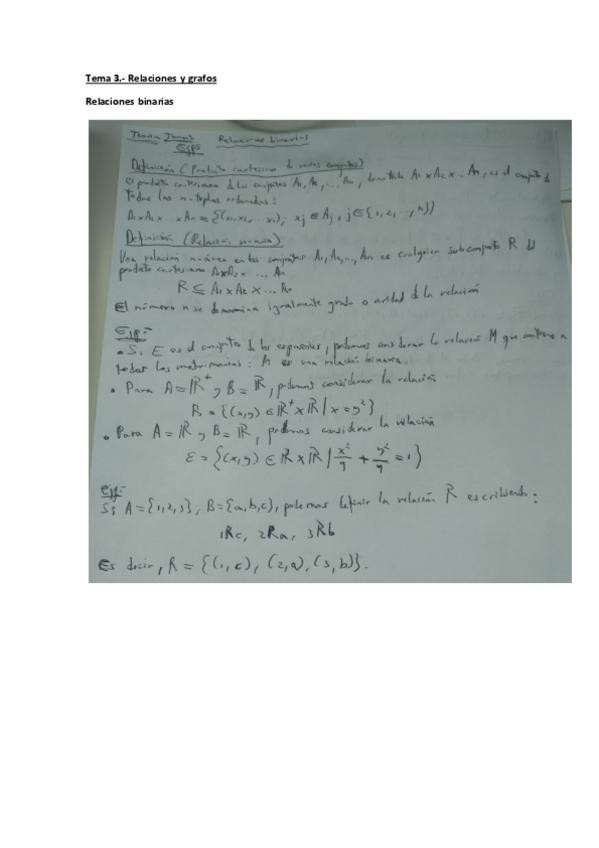 Tema 3.- Relaciones y grafos
Relaciones binarias
Relaciones binarias
Definición (Producto cartesiano de varios conjuntos)
El producto cartesiano de los conjuntos A1, A2, ..., An, denotado A1 x A2 x ... An, es el conjunto de
todas las n-tuplas ordenadas:
A1 x A2 x ... x An = {(x1, x2, ... xn); xj ∈ Aj, j ∈ {1, 2, ..., n}}
Definición (Relación n-aria)
Una relación n-aria entre los conjuntos A1, A2, ..., An es cualquier subconjunto R del
producto cartesiano A1xA2x ... An
R ⊆ A1 x A2 x ... An
El número n se denomina igualmente grado o aridad de la relación
Ejp:
• Si E es el conjunto de los españoles, podemos considerar la relación M que contiene a
todos los matrimonios: es una relación binaria.
• Para A = ℝ⁺ y B = ℝ, podemos considerar la relación
R = {(x,y) ∈ ℝ⁺ x ℝ | x = y²}
• Para A = ℝ y B = ℝ, podemos considerar la relación
E = {(x,y) ∈ ℝ x ℝ | x²/9 + y²/9 = 1}
Ejp:
Si A = {1,2,3}, B = {a,b,c}, podemos definir la relación R escribiendo:
1Rc, 2Ra, 3Rb
Es decir, R = {(1,c), (2,a), (3,b)}.